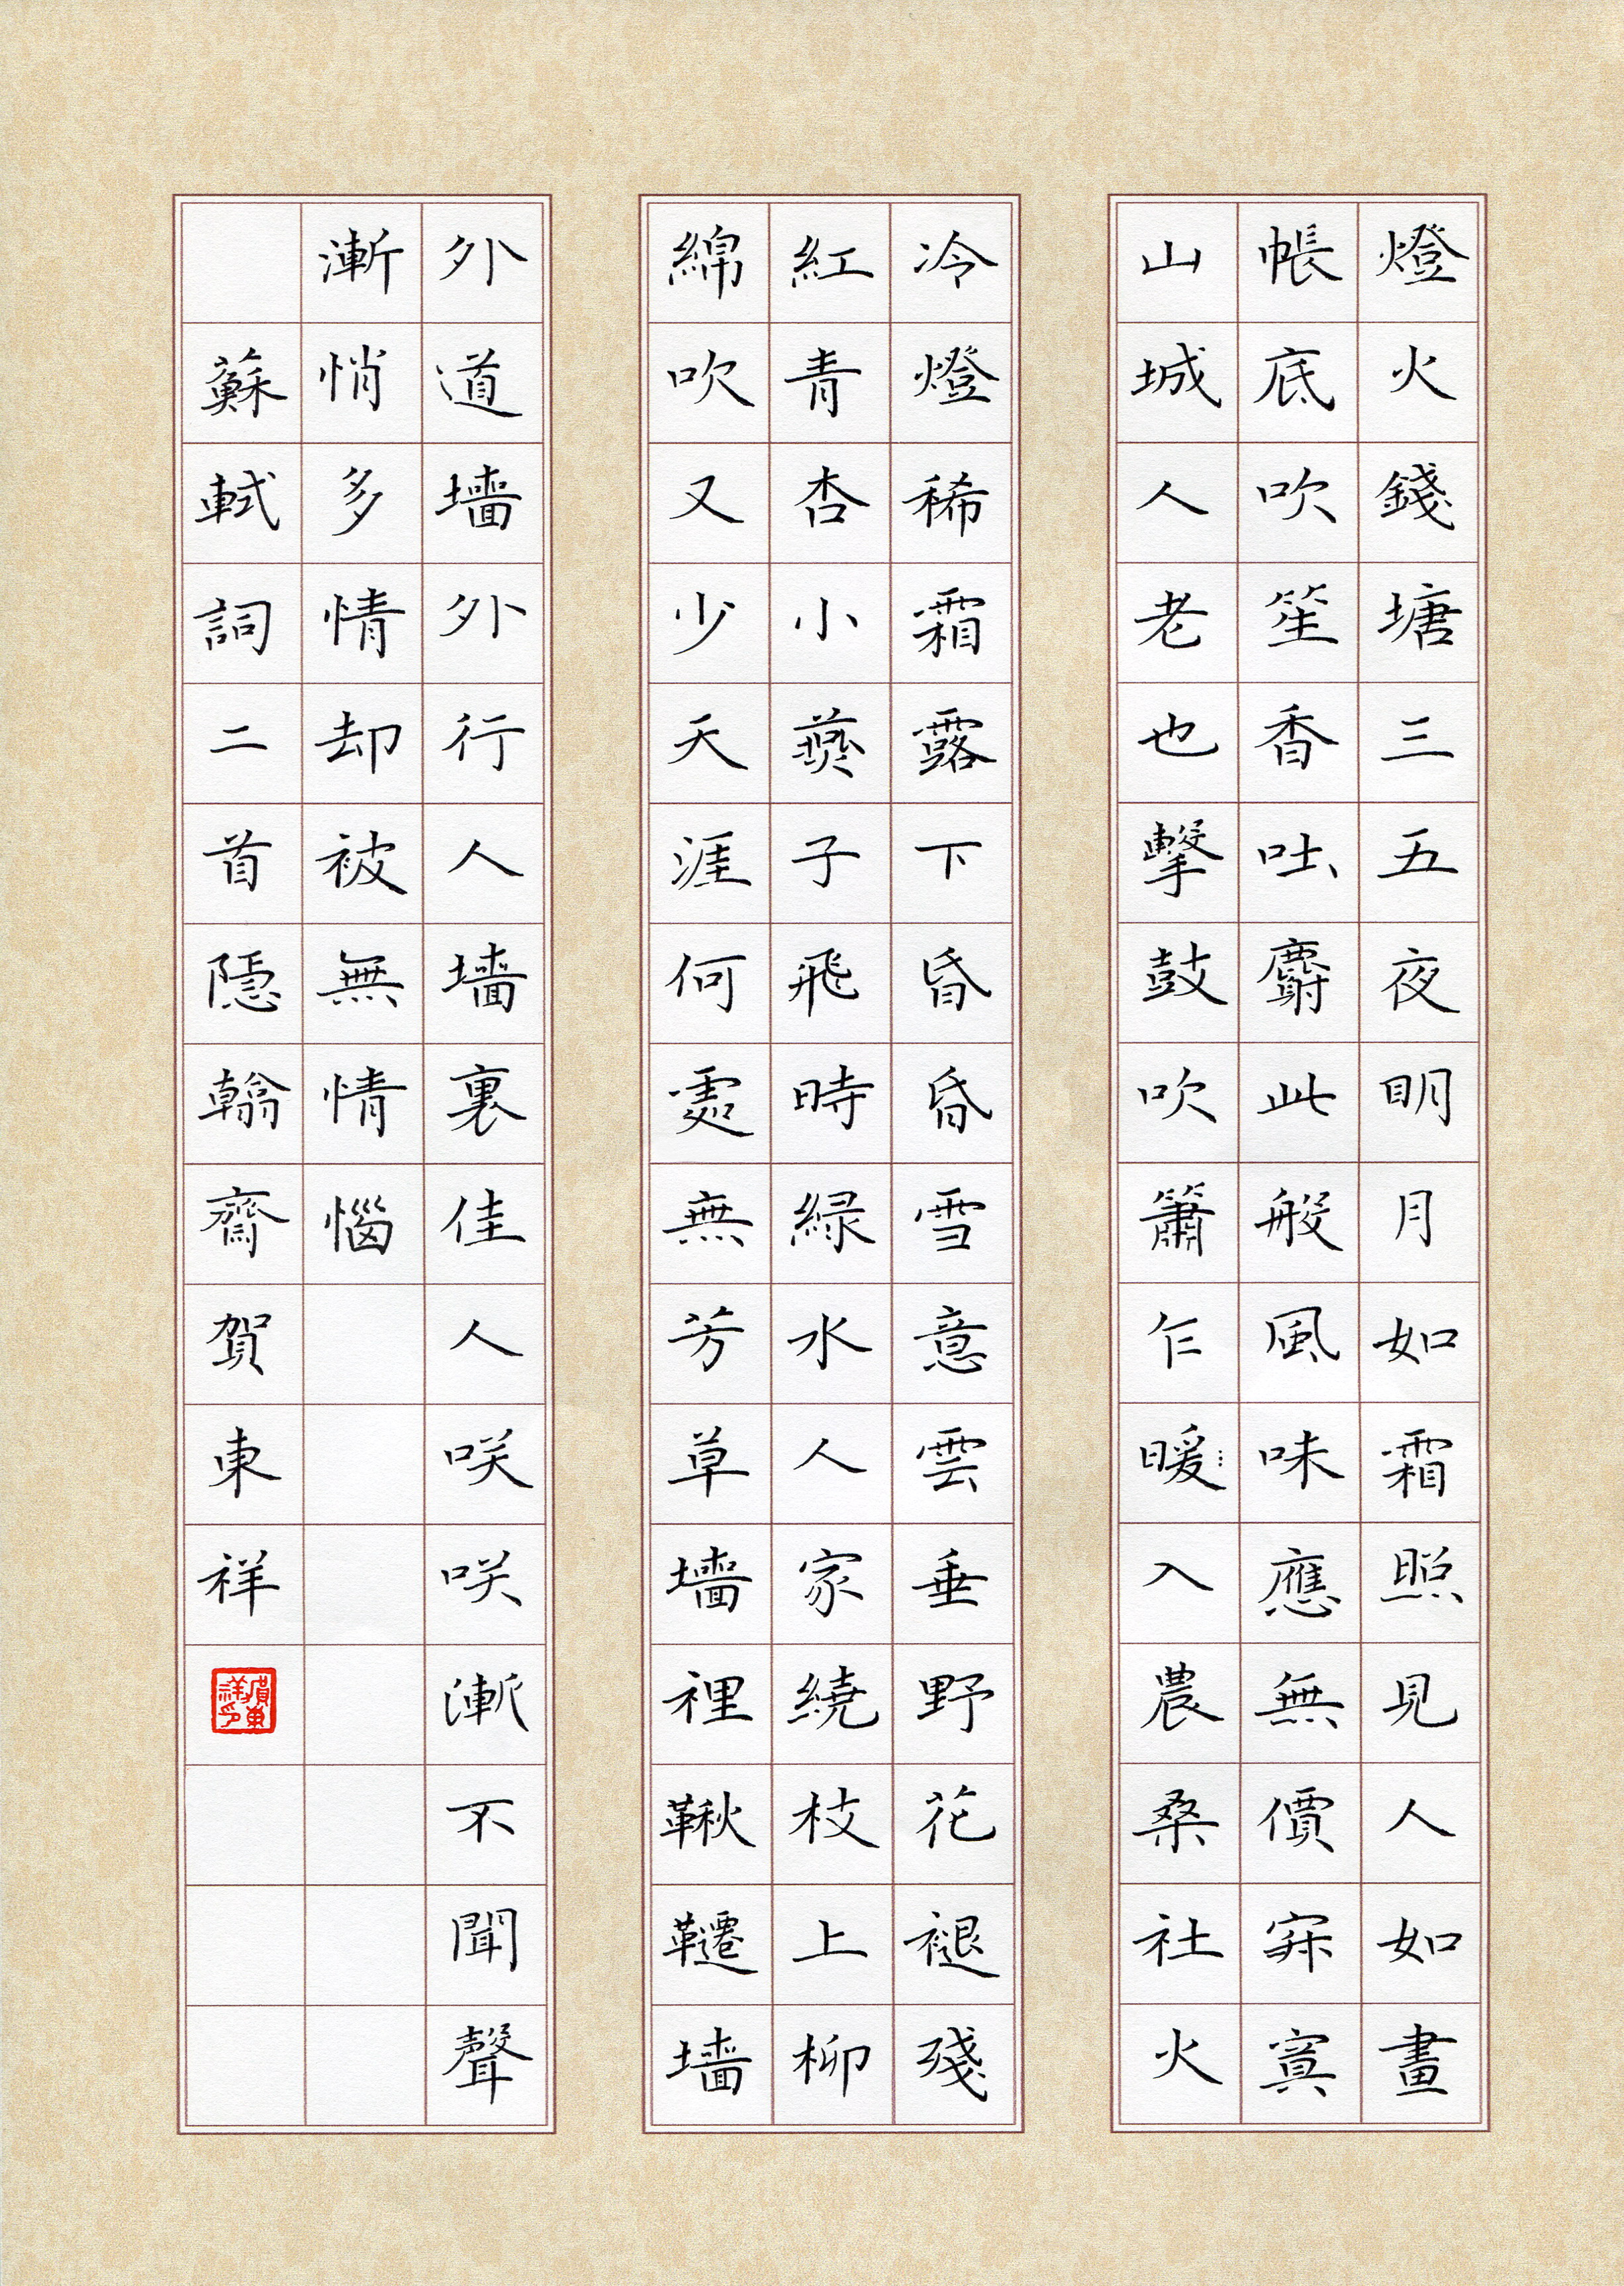 燈火錢塘三五夜明月如霜照見人如畫
帳底吹笙香吐麝此般風味應無價寂寞
山城人老也擊鼓吹簫乍暖入農桑社火
冷燈稀霜露下昏昏雪意雲垂野花褪殘
紅青杏小燕子飛時緑水人家繞枝上柳
綿吹又少天涯何處無芳草墻裡鞦韆墻
外道墻外行人墻裏佳人咲咲漸不聞聲
漸悄多情却被無情惱
蘇軾詞二首隱翰齋賀東祥
賀東祥印